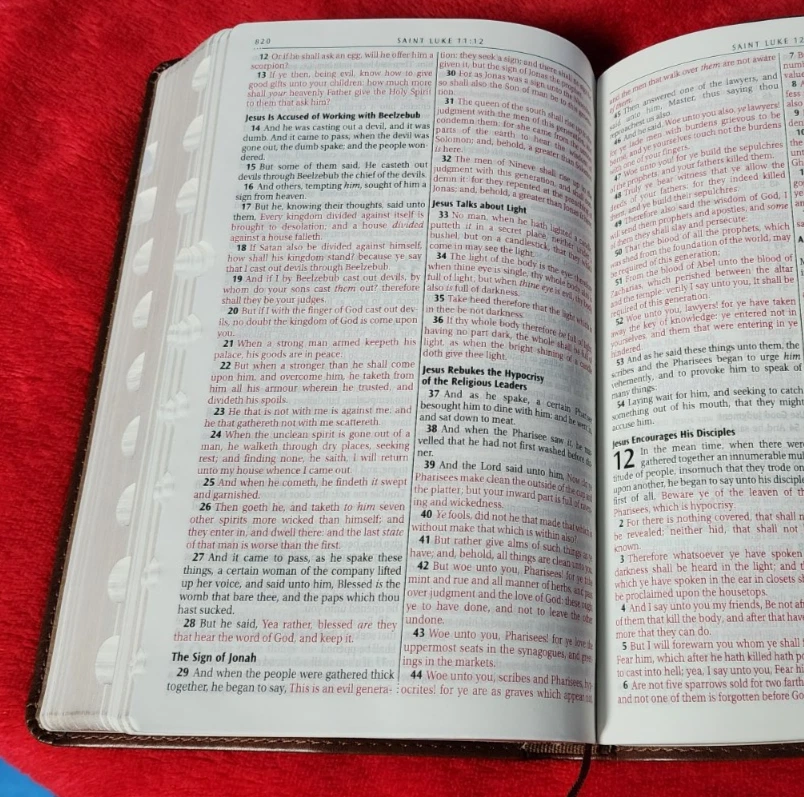 820
SAINT LUKE 11:12
12 Or if he shall ask an egg, will he offer him a
scorpion?
13 If ye then, being evil, know how to give
good gifts unto your children: how much more
shall your heavenly Father give the Holy Spirit
to them that ask him?
Jesus Is Accused of Working with Beelzebub
14 And he was casting out a devil, and it was
dumb. And it came to pass, when the devil was
gone out, the dumb spake; and the people won-
dered.
15 But some of them said, He casteth out
devils through Beelzebub the chief of the devils.
16 And others, tempting him, sought of him a
sign from heaven.
17 But he, knowing their thoughts, said unto
them, Every kingdom divided against itself is
brought to desolation; and a house divided
against a house falleth.
18 If Satan also be divided against himself,
how shall his kingdom stand? because ye say
that I cast out devils through Beelzebub.
19 And if I by Beelzebub cast out devils, by
whom do your sons cast them out? therefore
shall they be your judges.
20 But if I with the finger of God cast out dev-
ils, no doubt the kingdom of God is come upon
you.
21 When a strong man armed keepeth his
palace, his goods are in peace:
22 But when a stronger than he shall come
upon him, and overcome him, he taketh from
him all his armour wherein he trusted, and
divideth his spoils.
23 He that is not with me is against me: and
he that gathereth not with me scattereth.
24 When the unclean spirit is gone out of a
man, he walketh through dry places, seeking
rest; and finding none, he saith, I will return
unto my house whence I came out.
25 And when he cometh, he findeth it swept
and garnished.
26 Then goeth he, and taketh to him seven
other spirits more wicked than himself; and
they enter in, and dwell there: and the last state
of that man is worse than the first.
27 And it came to pass, as he spake these
things, a certain woman of the company lifted
up her voice, and said unto him, Blessed is the
womb that bare thee, and the paps which thou
hast sucked.
28 But he said, Yea rather, blessed are they
that hear the word of God, and keep it.
The Sign of Jonah
29 And when the people were gathered thick
together, he began to say, This is an evil genera-
tion: they seek a sign; and there shall no
given it, but the sign of Jonas the prophet
30 For as Jonas was a sign unto the
so shall also the Son of man be to this
tion.
31 The queen of the south shall rise up
judgment with the men of this generation
condemn them: for she came from the
parts of the earth to hear the wisdom
Solomon; and, behold, a greater than
is here.
32 The men of Nineve shall rise up
judgment with this generation, and shall
demn it: for they repented at the preaching
Jonas; and, behold, a greater than Jonas is
Jesus Talks about Light
33 No man, when he hath lighted a
putteth it in a secret place, neither under
bushel, but on a candlestick, that they
come in may see the light.
34 The light of the body is the eye: therefore
when thine eye is single, thy whole body
full of light; but when thine eye is evil, thy
also is full of darkness.
35 Take heed therefore that the light which
in thee be not darkness.
36 If thy whole body therefore be full of
having no part dark, the whole shall be full
light, as when the bright shining of a candle
doth give thee light.
Jesus Rebukes the Hypocrisy
of the Religious Leaders
37 And as he spake, a certain Pharisee
besought him to dine with him: and he went
and sat down to meat.
38 And when the Pharisee saw it, he mar-
velled that he had not first washed before
ner.
39 And the Lord said unto him, Now do ye
Pharisees make clean the outside of the cup and
the platter; but your inward part is full of
ing and wickedness.
40 Ye fools, did not he that made that which
without make that which is within also?
41 But rather give alms of such things as ye
have; and, behold, all things are clean unto you.
42 But woe unto you, Pharisees! for ye tithe
mint and rue and all manner of herbs, and pass
over judgment and the love of God: these ought
ye to have done, and not to leave the other
undone.
43 Woe unto you, Pharisees! for ye love the
uppermost seats in the synagogues, and greet-
ings in the markets.
44 Woe unto you, scribes and Pharisees, hyp-
ocrites! for ye are as graves which appear not
SAINT LUKE 12
and the men that walk over them are not aware
of them.
45 Then answered one of the lawyers, and
said unto him, Master, thus saying thou
reproachest us also.
46 And he said, Woe unto you also, ye lawyers!
for ye lade men with burdens grievous to be
borne, and ye yourselves touch not the burdens
with one of your fingers.
47 Woe unto you! for ye build the sepulchres
of the prophets, and your fathers killed them.
48 Truly ye bear witness that ye allow the
deeds of your fathers: for they indeed killed
them, and ye build their sepulchres.
49 Therefore also said the wisdom of God, I
will send them prophets and apostles, and some
of them they shall slay and persecute:
50 That the blood of all the prophets, which
was shed from the foundation of the world, may
be required of this generation;
51 From the blood of Abel unto the blood of
Zacharias, which perished between the altar
and the temple: verily I say unto you, It shall be
required of this generation.
52 Woe unto you, lawyers! for ye have taken
away the key of knowledge: ye entered not in
yourselves, and them that were entering in ye
hindered.
53 And as he said these things unto them, the
scribes and the Pharisees began to urge him
vehemently, and to provoke him to speak of
many things:
54 Laying wait for him, and seeking to catch
something out of his mouth, that they might
accuse him.
Jesus Encourages His Disciples
12 In the mean time, when there were
gathered together an innumerable mul
titude of people, insomuch that they trode on
upon another, he began to say unto his disciple
first of all, Beware ye of the leaven of th
Pharisees, which is hypocrisy.
2 For there is nothing covered, that shall n
be revealed; neither hid, that shall not
known.
3 Therefore whatsoever ye have spoken
darkness shall be heard in the light; and t
which ye have spoken in the ear in closets sh
be proclaimed upon the housetops.
4 And I say unto you my friends, Be not af
of them that kill the body, and after that have
more that they can do.
5 But I will forewarn you whom ye shall
Fear him, which after he hath killed hath po
to cast into hell; yea, I say unto you, Fear hi
6 Are not five sparrows sold for two farth
and not one of them is forgotten before Go